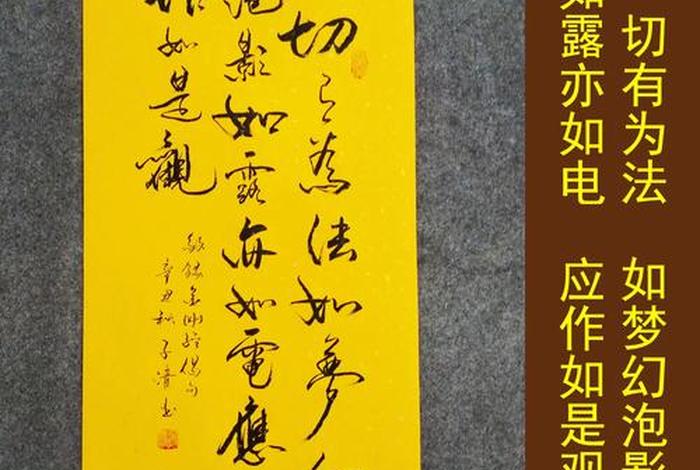 切有為法如夢
泡影如露亦如電應
作如是觀
敬錄金剛經偈句
辛丑秋子清书
切有为法 如梦幻泡影
如露亦如电 应作如是观